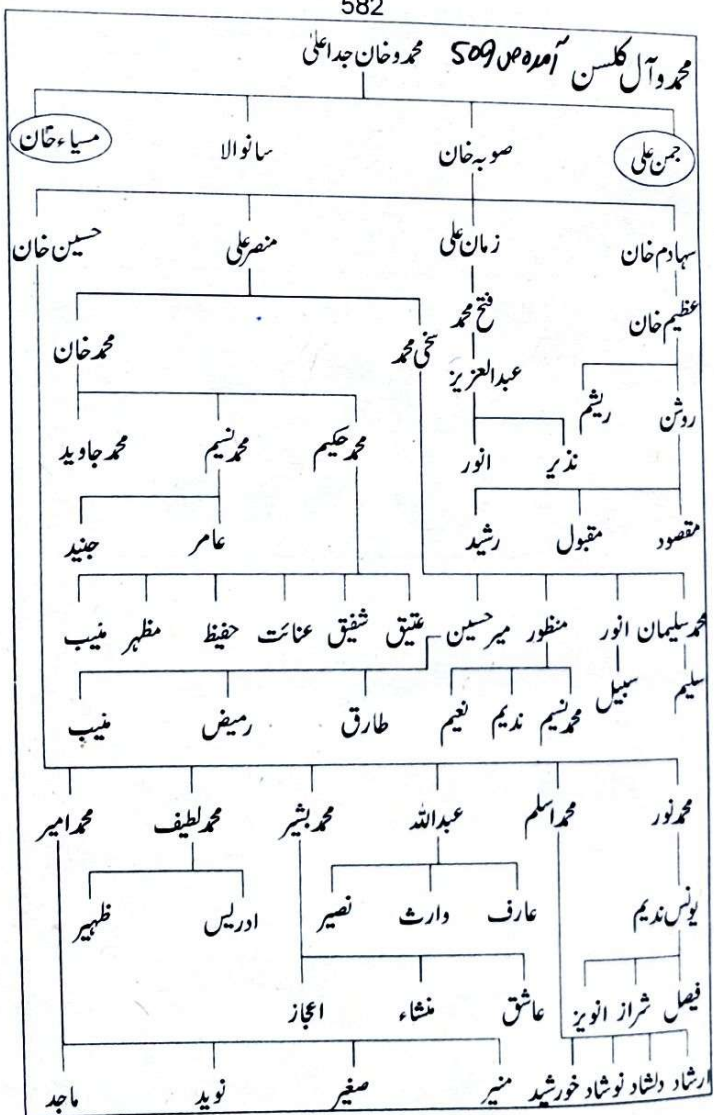 582
محمدو آل کلسن آمدہ ص 509 محمدو خان جد اعلیٰ
جمن علی صوبہ خان سانوالا مسیاء خان
سہادم خان زمان علی منصر علی حسین خان
عظیم خان فتح محمد سخی محمد محمد خان
ریشم روشن عبدالعزیز
نذیر انور محمد حکیم محمد نسیم محمد جاوید
مقصود مقبول رشید عامر جنید
محمد سلیمان انور منظور میر حسین عتیق شفیق عنائت حفیظ مظہر منیب
سلیم سبیل محمد نسیم ندیم نعیم طارق رمیض منیب
محمد نور محمد اسلم عبداللہ محمد بشیر محمد لطیف محمد امیر
یونس ندیم عارف وارث نصیر ادریس ظہیر
فیصل شراز انویز عاشق منشاء اعجاز
ارشاد دلشاد نوشاد خورشید منیر صغیر نوید ماجد